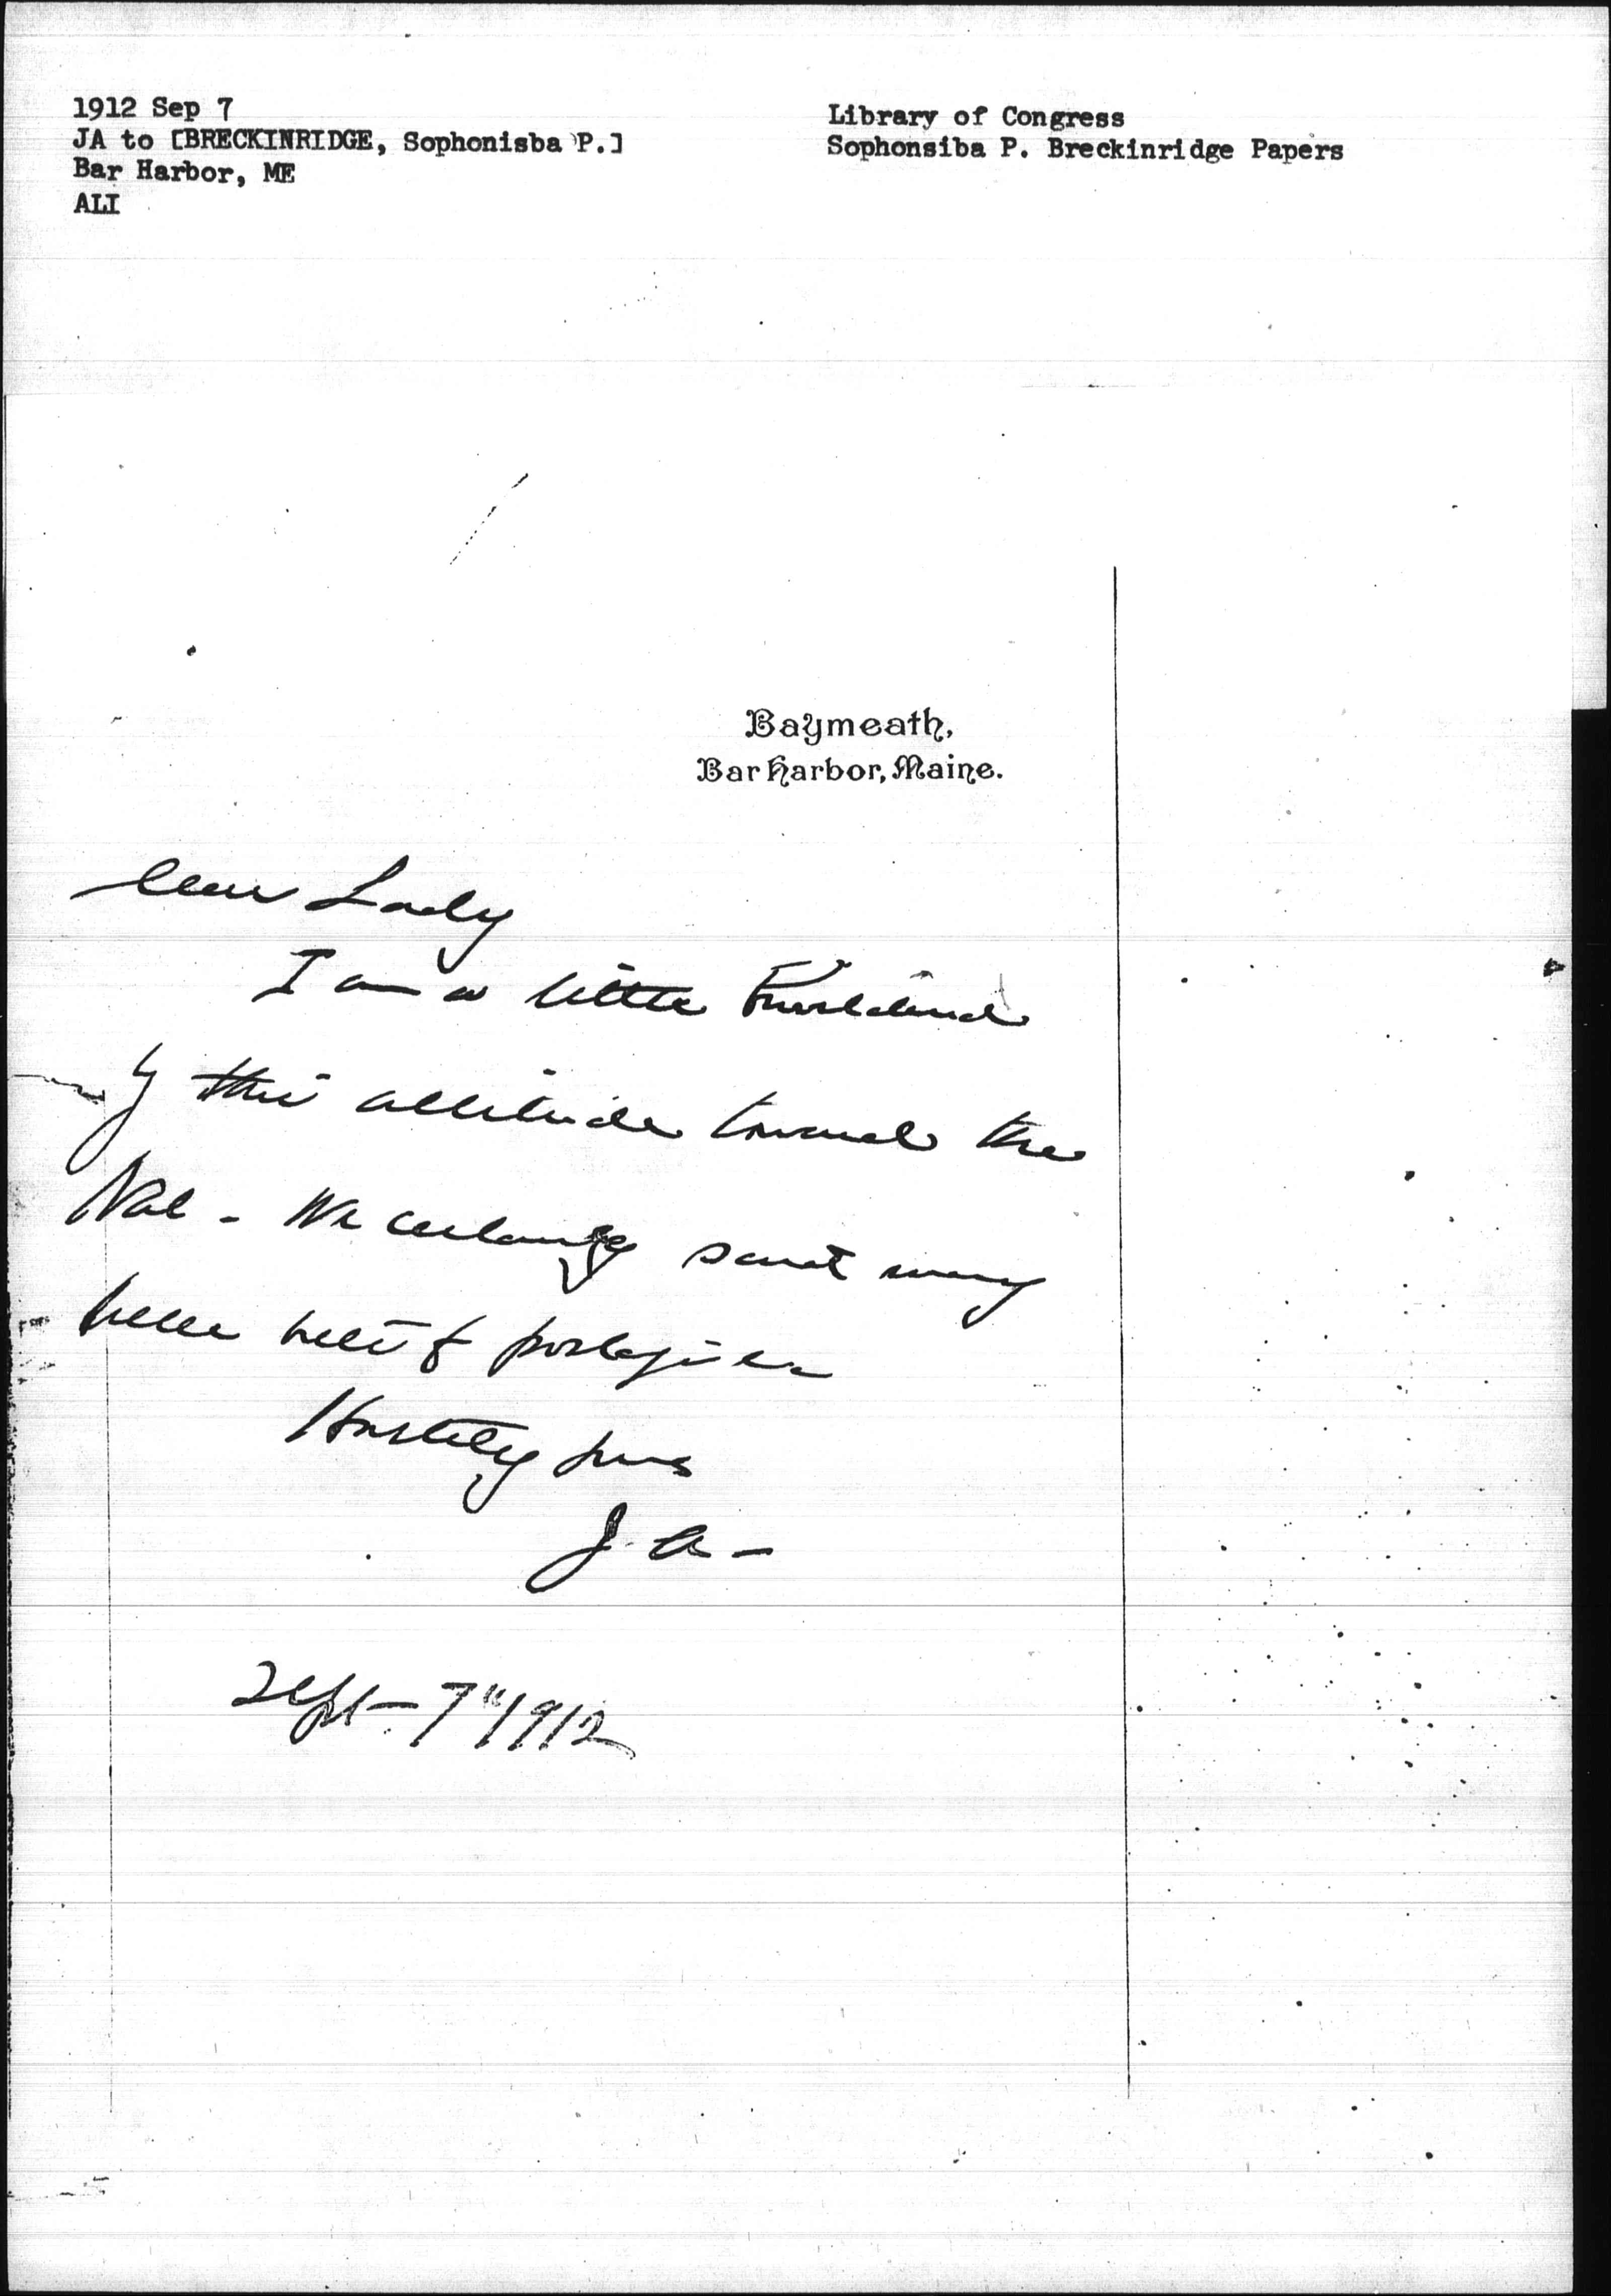 1912 Sep 7
JA to [BRECKINRIDGE, Sophonisba P.]
Bar Harbor, ME
ALI
Library of Congress
Sophonsiba P. Breckinridge Papers
Baymeath,
Bar Harbor, Maine.
Dear Lady
I am a little
by this attitude toward the
Nat - We certainly
Hastily yours
J. A -
Sept - 7" 1912